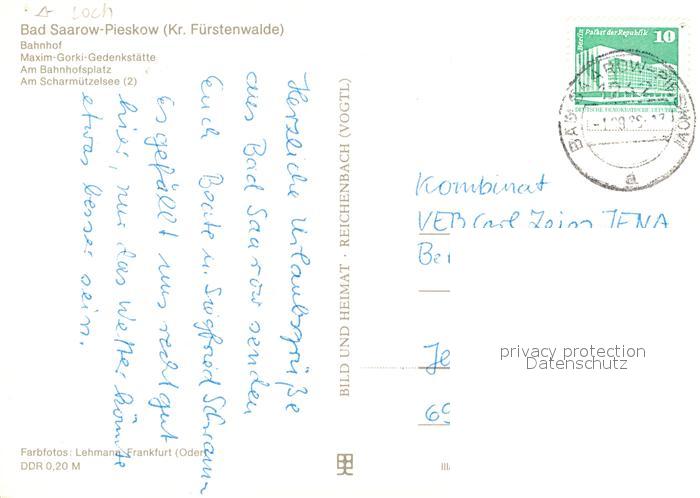 Loch
Bad Saarow-Pieskow (Kr. Fürstenwalde)
Bahnhof
Maxim-Gorki-Gedenkstätte
Am Bahnhofsplatz
Am Scharmützelsee (2)
Herzliche Urlaubsgrüße
aus Bad Saarow senden
Euch Beate u. Siegfried Schramm
Es gefällt uns recht gut
hier, nur das Wetter könnte
etwas besser sein.
Farbfotos: Lehmann, Frankfurt (Oder)
DDR 0,20 M
BILD UND HEIMAT · REICHENBACH (VOGTL)
Berlin Palast der Republik 10
DEUTSCHE DEMOKRATISCHE REPUBLIK
BAD SAAROW-PIESKOW
a
Kombinat
VEB Carl Zeiss JENA
Be
Je
69
III
privacy protection
Datenschutz